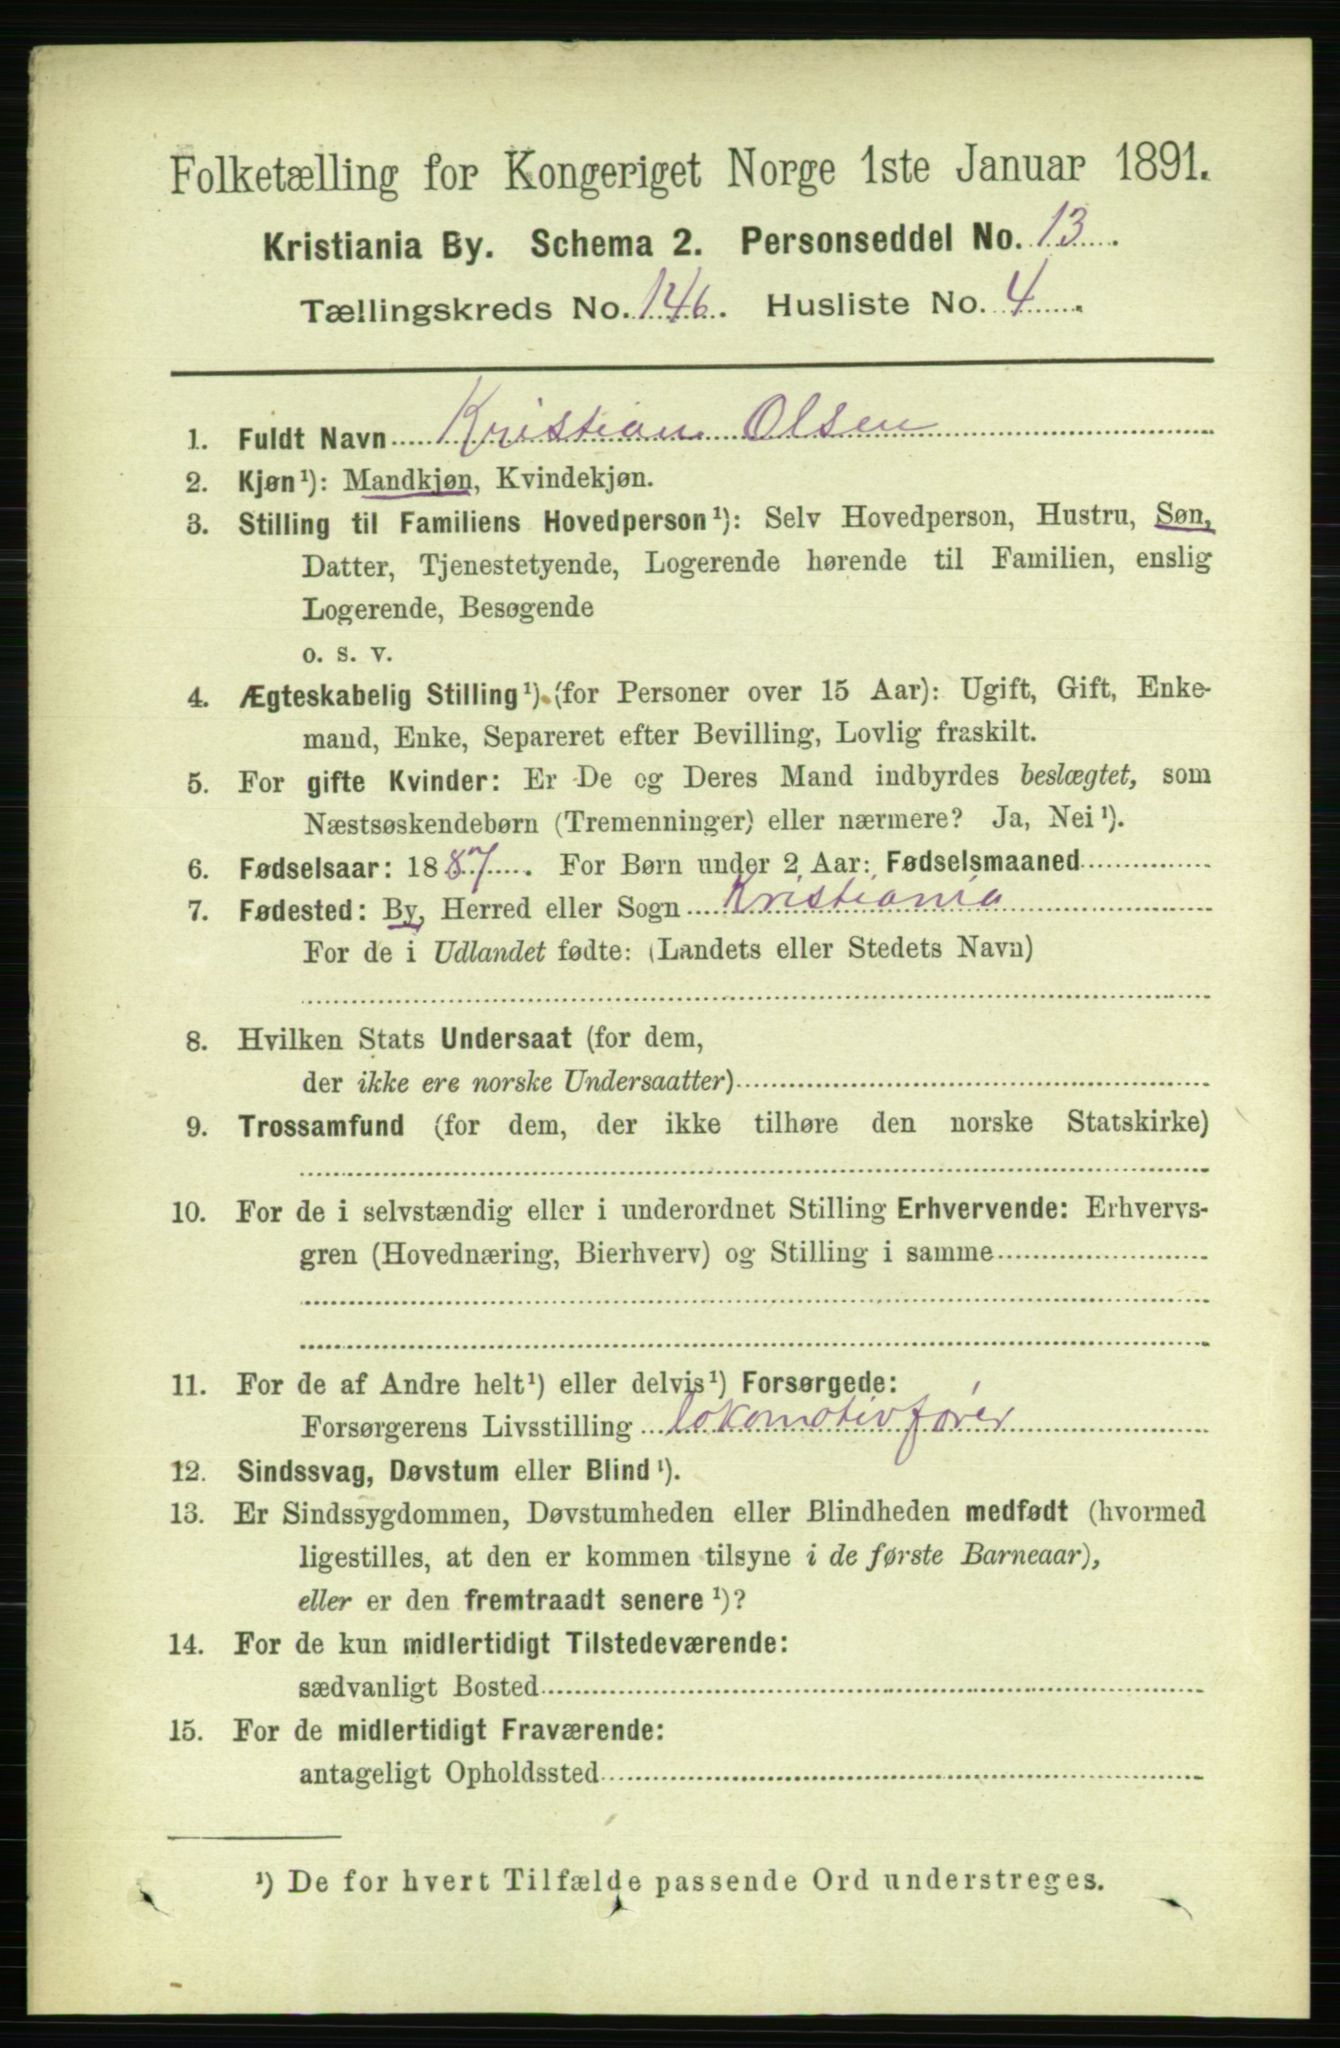 Folketælling for Kongeriget Norge 1ste Januar 1891.
Kristiania By. Schema 2. Personseddel No. 13.
Tællingskreds No. 146. Husliste No. 4.
1. Fuldt Navn Kristian Olsen
2. Kjøn¹): Mandkjøn, Kvindekjøn.
3. Stilling til Familiens Hovedperson¹): Selv Hovedperson, Hustru, Søn,
Datter, Tjenestetyende, Logerende hørende til Familien, enslig
Logerende, Besøgende
o. s. v.
4. Ægteskabelig Stilling¹) (for Personer over 15 Aar): Ugift, Gift, Enke-
mand, Enke, Separeret efter Bevilling, Lovlig fraskilt.
5. For gifte Kvinder: Er De og Deres Mand indbyrdes beslægtet, som
Næstsøskendebørn (Tremenninger) eller nærmere? Ja, Nei¹).
6. Fødselsaar: 1887. For Børn under 2 Aar: Fødselsmaaned
7. Fødested: By, Herred eller Sogn Kristiania
For de i Udlandet fødte: (Landets eller Stedets Navn)
8. Hvilken Stats Undersaat (for dem,
der ikke ere norske Undersaatter)
9. Trossamfund (for dem, der ikke tilhøre den norske Statskirke)
10. For de i selvstændig eller i underordnet Stilling Erhvervende: Erhvervs-
gren (Hovednæring, Bierhverv) og Stilling i samme
11. For de af Andre helt¹) eller delvis¹) Forsørgede:
Forsørgerens Livsstilling lokomotivfører
12. Sindssvag, Døvstum eller Blind¹).
13. Er Sindssygdommen, Døvstumheden eller Blindheden medfødt (hvormed
ligestilles, at den er kommen tilsyne i de første Barneaar),
eller er den fremtraadt senere¹)?
14. For de kun midlertidigt Tilstedeværende:
sædvanligt Bosted
15. For de midlertidigt Fraværende:
antageligt Opholdssted
¹) De for hvert Tilfælde passende Ord understreges.